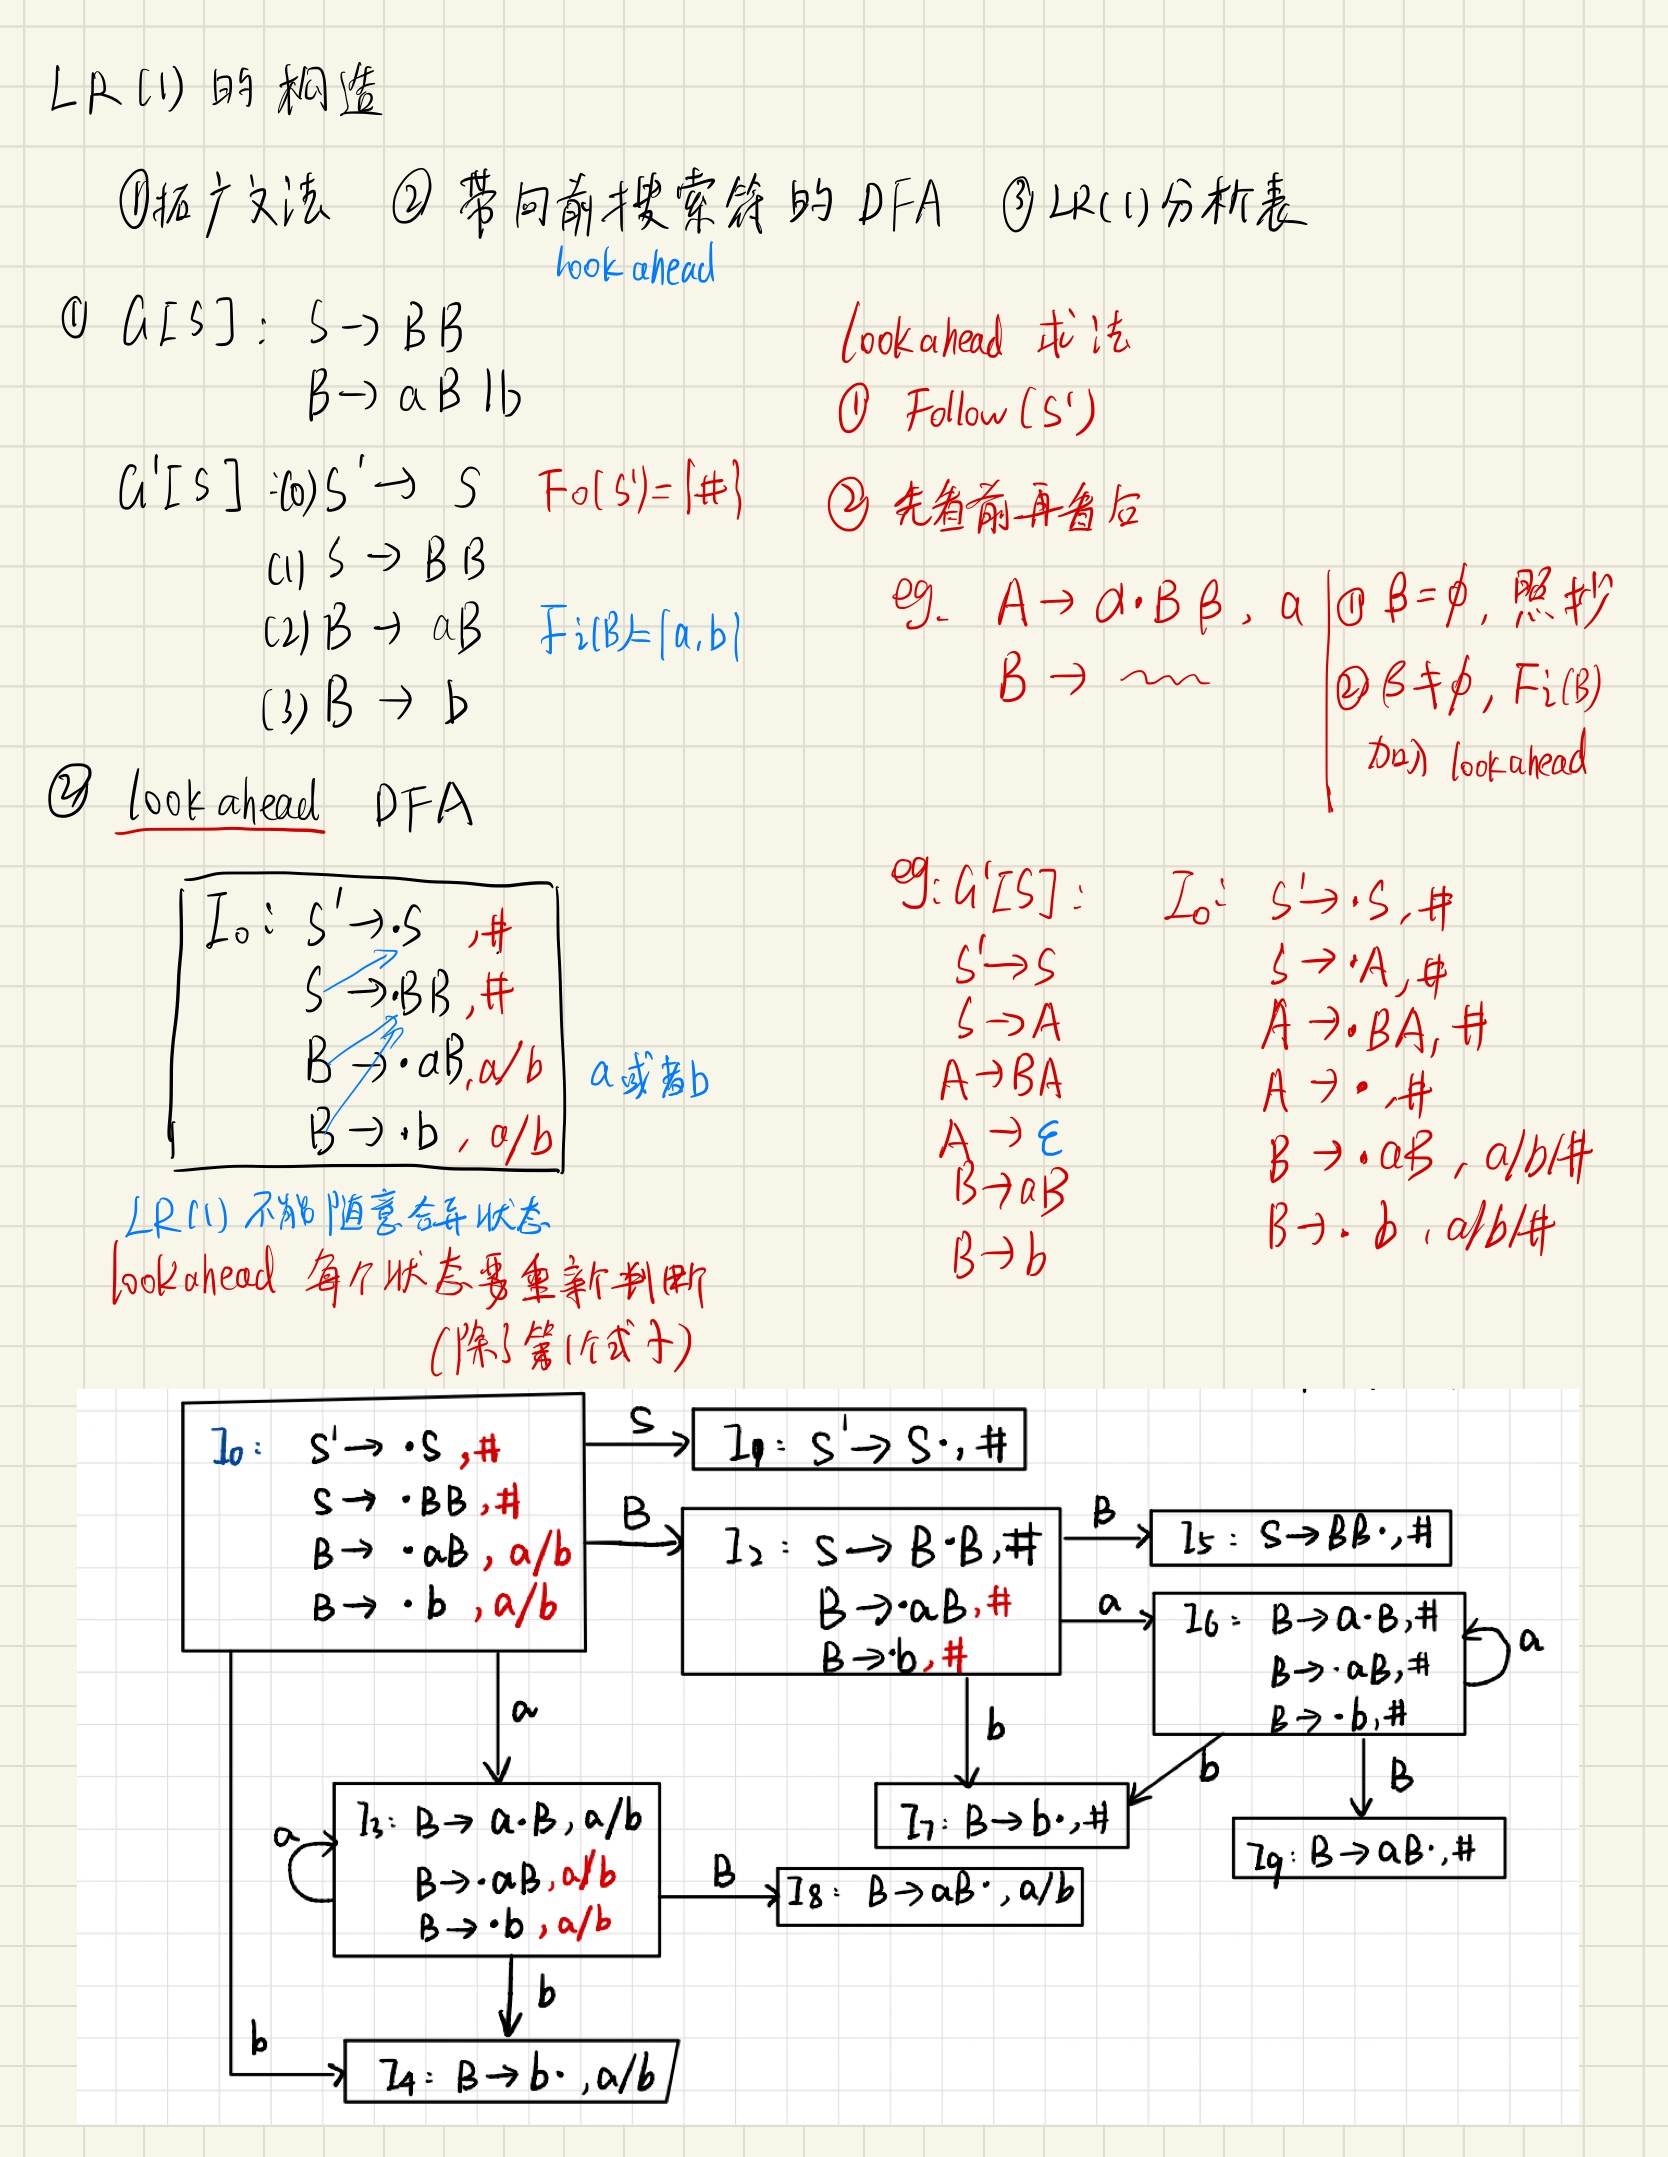 LR(1) 的构造
①拓广文法 ② 带向前搜索符的 DFA ③ LR(1)分析表
lookahead
① G[S]: S → BB
B → aB | b
G'[S]: (0) S' → S Fo(S')={#}
(1) S → BB
(2) B → aB Fi(B)={a,b}
(3) B → b
lookahead 求法
① Follow(S')
② 先看前再看后
eg. A → α·Bβ, a
B → ~~~
① β=φ, 照抄
② β≠φ, Fi(β)
加入 lookahead
② lookahead DFA
I0: S' → ·S ,#
S → ·BB ,#
B → ·aB, a/b
B → ·b , a/b
a或者b
LR(1) 不能随意合并状态
lookahead 每个状态要重新判断
(除了第1个式子)
eg: G'[S]:
S' → S
S → A
A → BA
A → ε
B → aB
B → b
I0: S' → ·S, #
S → ·A, #
A → ·BA, #
A → · , #
B → ·aB , a/b/#
B → ·b , a/b/#
I0: S' → ·S ,#
S → ·BB ,#
B → ·aB , a/b
B → ·b , a/b
S
I1: S' → S· , #
B
I2: S → B·B, #
B → ·aB, #
B → ·b, #
B
I5: S → BB· , #
a
I6: B → a·B, #
B → ·aB, #
B → ·b, #
a
a
b
b
B
I3: B → a·B, a/b
B → ·aB, a/b
B → ·b , a/b
a
I7: B → b· , #
I9: B → aB· , #
B
I8: B → aB· , a/b
b
b
I4: B → b· , a/b